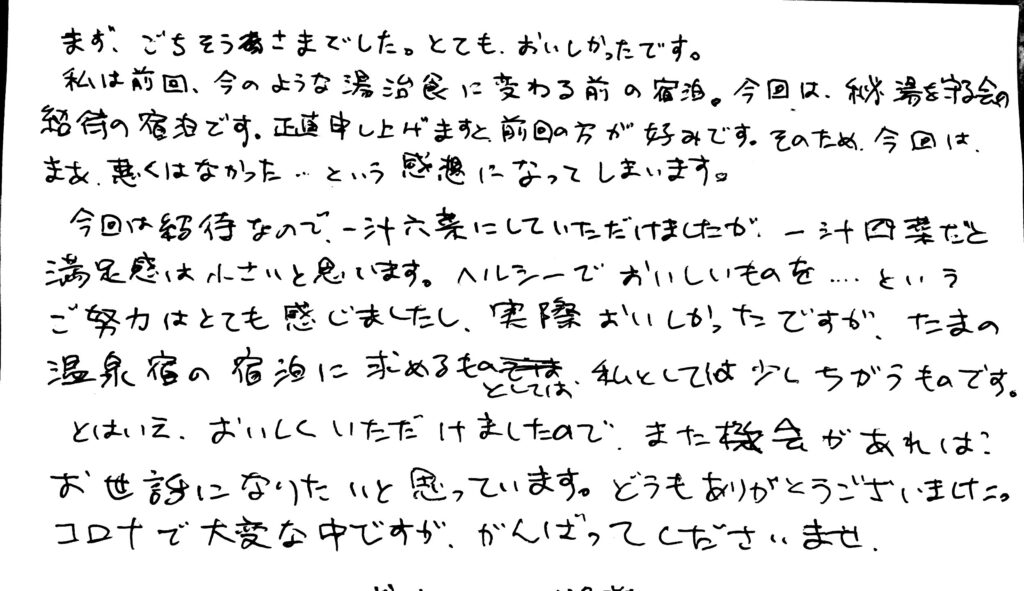 まず、ごちそうさまでした。とても、おいしかったです。
私は前回、今のような湯治食に変わる前の宿泊。今回は、秘湯を守る会の
招待の宿泊です。正直申し上げますと、前回の方が好みです。そのため、今回は、
まあ、悪くはなかった…という感想になってしまいます。
今回は招待なので、一汁六菜にしていただけましたが、一汁四菜だと
満足感は小さいと思います。ヘルシーでおいしいものを……という
ご努力はとても感じましたし、実際おいしかったですが、たまの
温泉宿の宿泊に求めるものとしては、私としては少しちがうものです。
とはいえ、おいしくいただけましたので、また機会があれば
お世話になりたいと思っています。どうもありがとうございました。
コロナで大変な中ですが、がんばってくださいませ。